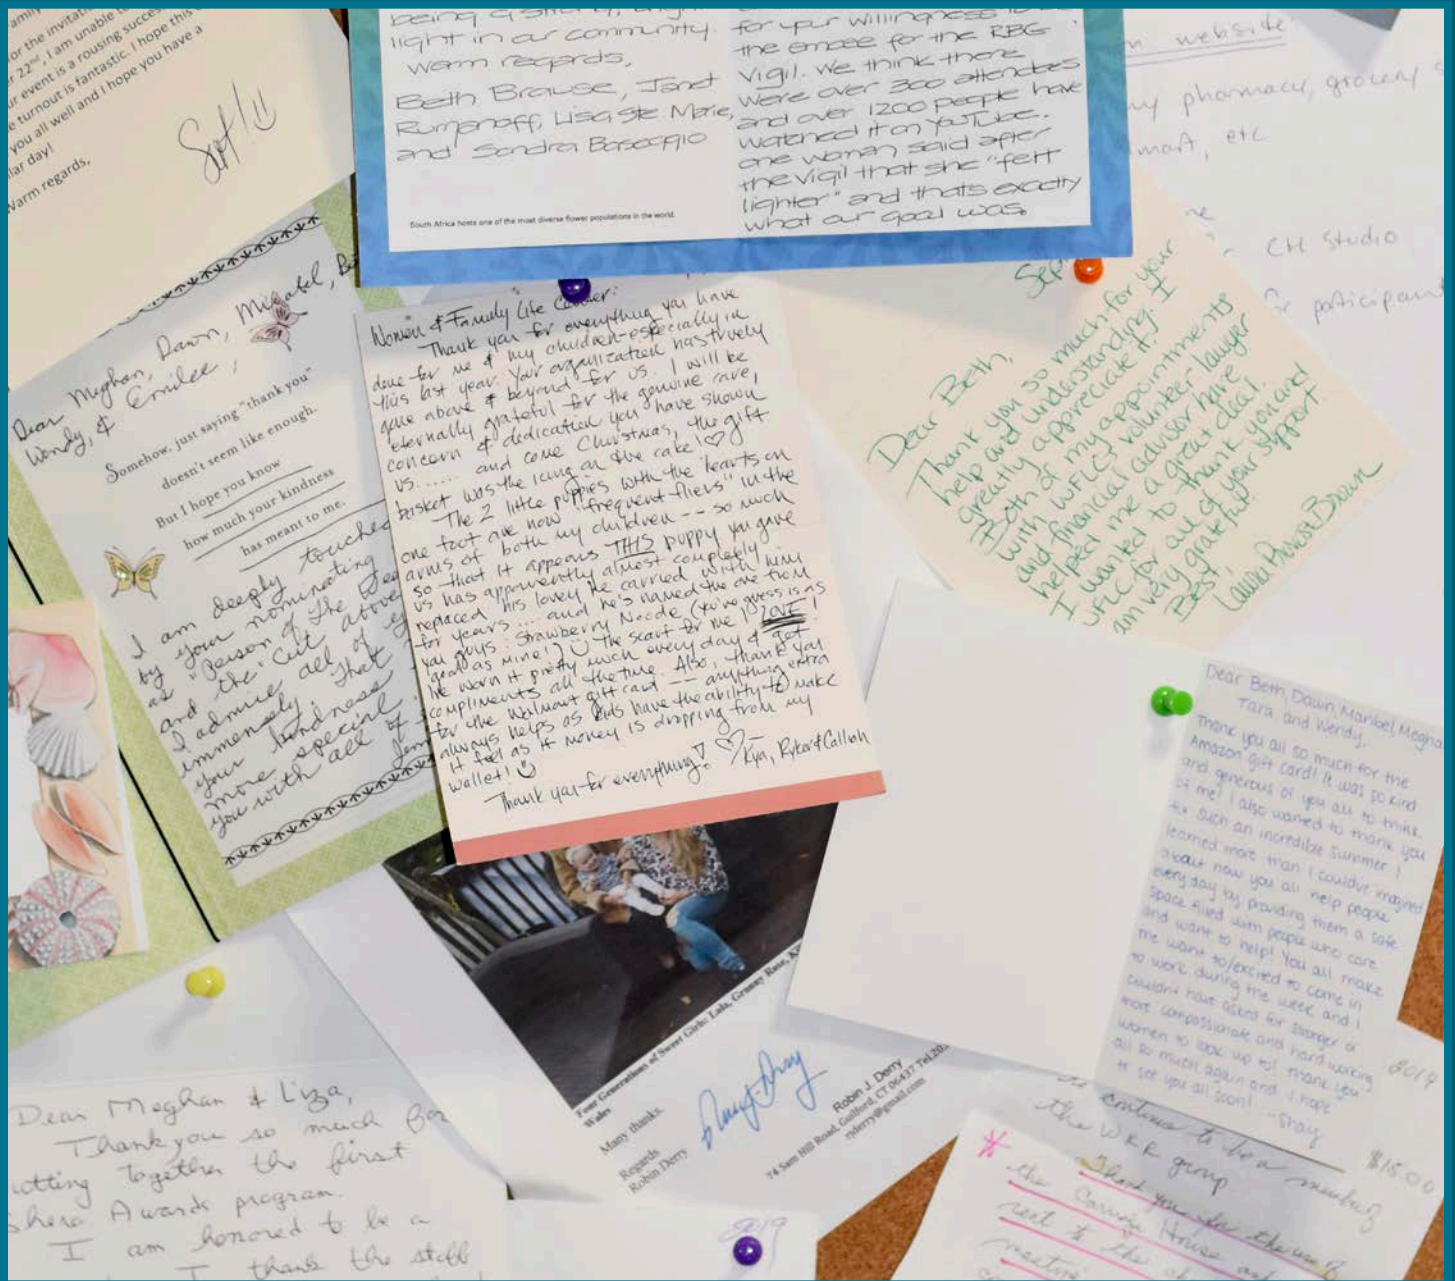 or the invitati
22nd, I am unable to
r event is a rousing succes
e turnout is fantastic. I hope this
you all well and I hope you have a
lar day!
Warm regards,
light in our community.
Warm regards,
Beth Brause, Janet
Rumanoff, Lisa Ste. Marie,
and Sondra Boscoggio
South Africa hosts one of the most diverse flower populations in the world.
for your willingness to be
the emcee for the RBG
Vigil. We think there
were over 300 attendees
and over 1200 people have
watched it on YouTube.
One woman said after
the vigil that she "felt
lighter" and thats exactly
what our goal was.
website
pharmacy, grocery
mart, etc
CH Studio
participant
Dear Meghan, Dawn, Maribel,
Wendy, & Emilee,
Somehow, just saying "thank you"
doesn't seem like enough.
But I hope you know
how much your kindness
has meant to me.
I am deeply touched
by your nominating
as "Person of the Yea
and the "Cut Above
I admire all of
immensely. That
your kindness
more special
you with all of
Women & Family Life Center:
Thank you for everything you have
done for me & my children - especially in
this last year. Your organization has truely
gone above & beyond for us. I will be
eternally grateful for the genuine care,
concern & dedication you have shown
us...... and come Christmas, the gift
basket was the icing on the cake! ♡
The 2 little puppies with the hearts on
one foot are now "frequent fliers" in the
arms of both my children -- so much
so that it appears THIS puppy you gave
us has apparently almost completely
replaced his lovey he carried with him
for years.... and he's named the one from
you guys: Strawberry Noodle (you've guess is as
good as mine!) The scarf for me I LOVE!
I've worn it pretty much every day & get
compliments all the time. Also, thank you
for the Walmart gift card -- anything extra
always helps as kids have the ability to make
it feel as if money is dropping from my
wallet!
Thank you for everything! ♡ Kya, Ryker & Calliah
Dear Beth,
Thank you so much for your
help and understanding. I
greatly appreciate it!
Both of my appointments
with WFLC's volunteer lawyer
and financial advisor have
helped me a great deal.
I wanted to thank you and
WFLC for all of your support.
I am very grateful!
Best,
Laura Provost Brown
Dear Beth, Dawn, Maribel, Megha
Tara, and Wendy,
Thank you all so much for the
Amazon gift card! It was so kind
and generous of you all to think
of me! I also wanted to thank you
for such an incredible summer. I
learned more than I could've imagined
about how you all help people
every day by providing them a safe
space filled with people who care
and want to help! You all make
me want to/excited to come in
to work during the week and I
couldn't have asked for stronger or
more compassionate and hard working
women to look up to! Thank you
all so much again and I hope
to see you all soon! -Shay
Four Generations of Sweet Girls: Lala, Granny Rose,
Wales
Many thanks,
Regards
Robin Derry
Robin J. Derry
74 Sam Hill Road, Guilford, CT 06437
rjderry@gmail.com
Dear Meghan & Liza,
Thank you so much for
utting together the first
Shero Awards program.
I am honored to be a
I thank the staff
2019
2019
continue to be a member of
the WRR group
$15.00
Thank you for the use of
the Carriage House
next to the
meeting